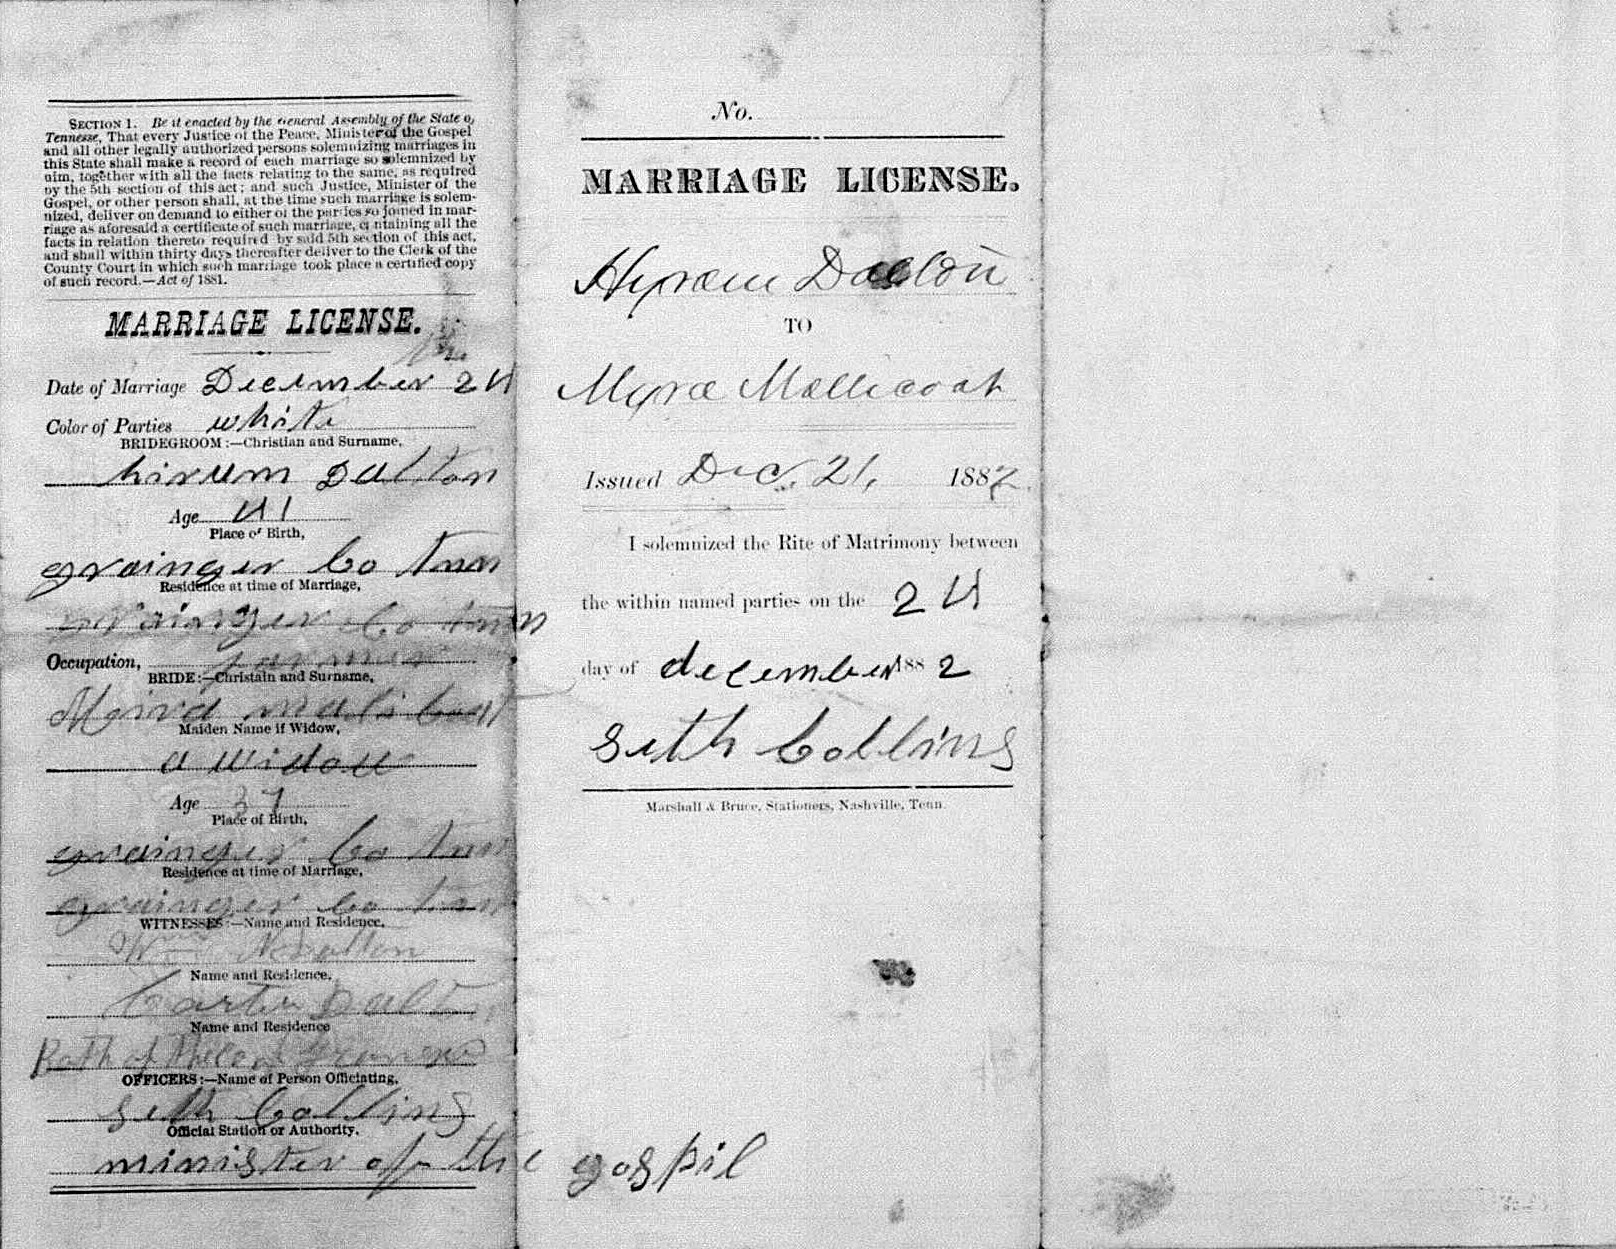 SECTION 1. Be it enacted by the General Assembly of the State o,
Tennesse, That every Justice of the Peace, Minister of the Gospel
and all other legally authorized persons solemnizing marriages in
this State shall make a record of each marriage so solemnized by
nim, together with all the facts relating to the same, as required
by the 5th section of this act; and such Justice, Minister of the
Gospel, or other person shall, at the time such marriage is solem-
nized, deliver on demand to either of the parties so joined in mar-
riage as aforesaid a certificate of such marriage, containing all the
facts in relation thereto required by said 5th section of this act,
and shall within thirty days thereafter deliver to the Clerk of the
County Court in which such marriage took place a certified copy
of such record.—Act of 1881.
MARRIAGE LICENSE.
Date of Marriage December 24
Color of Parties white
BRIDEGROOM:—Christian and Surname,
hirum Dalton
Age 41
Place of Birth,
grainger Co tenn
Residence at time of Marriage,
grainger Co tenn
Occupation, farmer
BRIDE:—Christain and Surname,
Maiden Name if Widow,
a widow
Age 37
Place of Birth,
grainger Co tenn
Residence at time of Marriage,
grainger Co tenn
WITNESSES:—Name and Residence,
Wm Dalton
Name and Residence,
Carter Dalt
Name and Residence
Both of
OFFICERS:—Name of Person Officiating,
Seth Collins
Official Station or Authority,
minister of the gospil
No.
MARRIAGE LICENSE.
Hyram Dalton
TO
Myra Mallicoat
Issued Dec. 21, 1882
I solemnized the Rite of Matrimony between
the within named parties on the 24
day of december 1882
Seth Collins
Marshall & Bruce, Stationers, Nashville, Tenn.